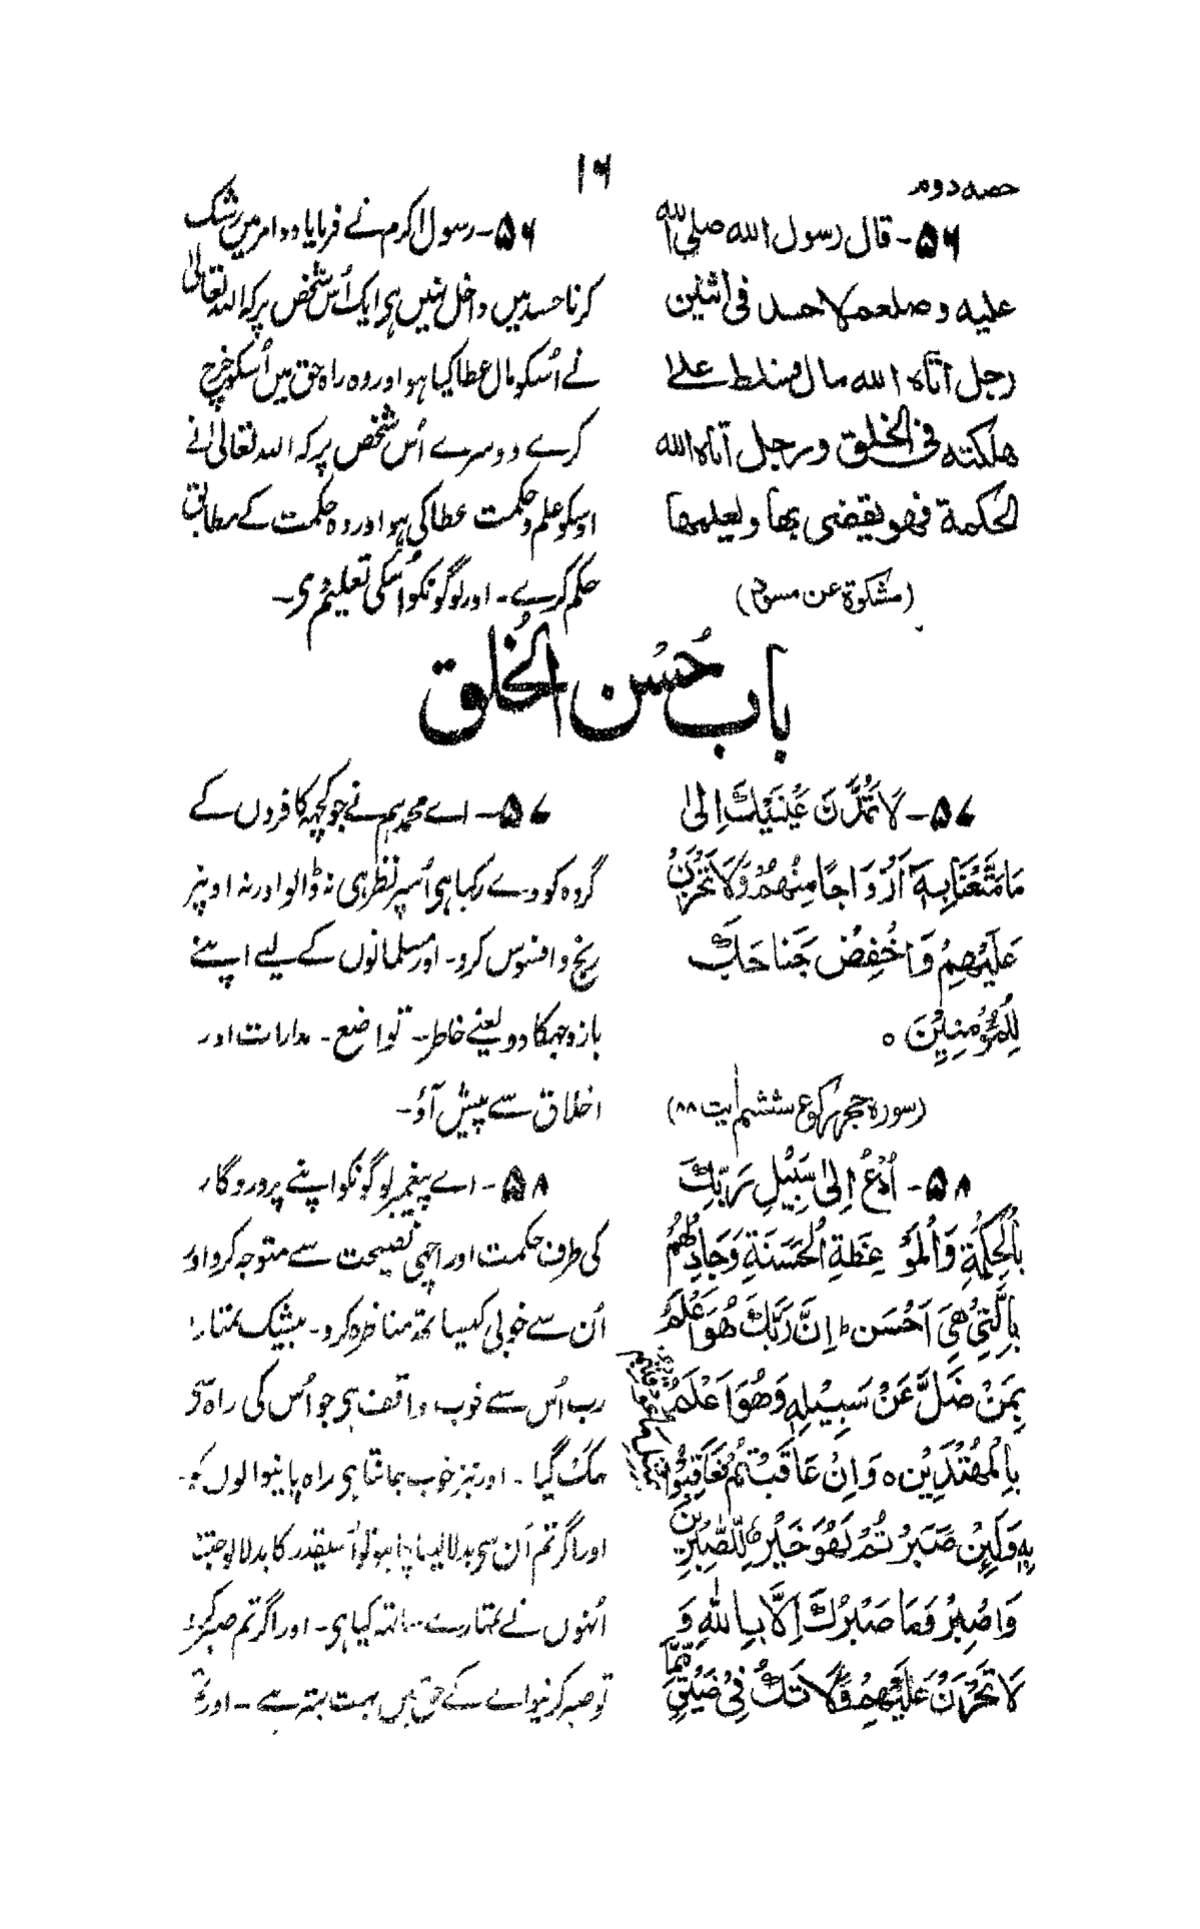 حصہ دوم
۱۶
۵۶- قال رسول الله صلى الله
عليه وصلعم لا حسد فى اثنين
رجل اتاه الله مال فسلط على
هلكته فى الخلق ورجل آتاه الله
الحكمة فهو يقضى بها ويعلمها
(مشکوٰة عن مسلم)
۵۶- رسول اکرم نے فرمایا دو امر میں رشک
کرنا حسد میں داخل نہیں ہی ایک اُس شخص پر کہ اللہ تعالیٰ
نے اُسکو مال عطا کیا ہو اور وہ راہ حق میں اُسکو خرچ
کرے دوسرے اُس شخص پر کہ اللہ تعالیٰ نے
اوسکو علم و حکمت عطا کی ہو اور وہ حکمت کے مطابق
حکم کرے۔ اور لوگونکو اُسکی تعلیم دی۔
باب حُسْن الخُلق
۵۷- لَا تَمُدَّنَّ عَيْنَيْكَ اِلىٰ
مَا مَتَّعْنَا بِهٖٓ اَزْوَاجًا مِنْهُمْ وَلَا تَحْزَنْ
عَلَيْهِمْ وَاخْفِضْ جَنَاحَكَ
لِلْمُؤْمِنِيْنَ ٥
(سورہ حجر رکوع ششم آیت ۸۸)
۵۷- اے محمد ہم نے جو کچھہ کافروں کے
گروہ کو دے رکہا ہی اُسپر نظر ہی نہ ڈالو اور نہ اونپر
رنج و افسوس کرو۔ اور مسلمانوں کے لیے اپنے
بازو جہکا دو یعنے خاطر۔ تواضع۔ مدارات اور
اخلاق سے پیش آؤ۔
۵۸- اُدْعُ اِلىٰ سَبِيْلِ رَبِّكَ
بِالْحِكْمَةِ وَالْمَوْعِظَةِ الْحَسَنَةِ وَجَادِلْهُمْ
بِالَّتِيْ هِيَ اَحْسَنُ ط اِنَّ رَبَّكَ هُوَ اَعْلَمُ
بِمَنْ ضَلَّ عَنْ سَبِيْلِهٖ وَهُوَ اَعْلَمُ
بِالْمُهْتَدِيْنَ ٥ وَاِنْ عَاقَبْتُمْ فَعَاقِبُوْا
بِهٖ وَلَئِنْ صَبَرْتُمْ لَهُوَ خَيْرٌ لِّلصّٰبِرِيْنَ
وَاصْبِرْ وَمَا صَبْرُكَ اِلَّا بِاللّٰهِ وَ
لَا تَحْزَنْ عَلَيْهِمْ وَلَا تَكُ فِيْ ضَيْقٍ مِّمَّا
۵۸- اے پیغمبر لوگونکو اپنے پروردگار
کی طرف حکمت اور اچہی نصیحت سے متوجہ کرو اور
اُن سے خوبی کیساتھ مناظرہ کرو۔ بیشک تمہارا
رب اُس سے خوب واقف ہی جو اُس کی راہ سے
بہک گیا۔ اور نیز خوب جانتا ہی راہ پانیوالوں کو۔
اور اگر تم اُن سی بدلا لینا چاہو تو اُسیقدر کا بدلا لو جتنا
اُنہوں نے تمہارے ساتھہ کیا ہی۔ اور اگر تم صبر کرو
تو صبر کرنیوالے کے حق میں بہت بہتر ہے۔ اور